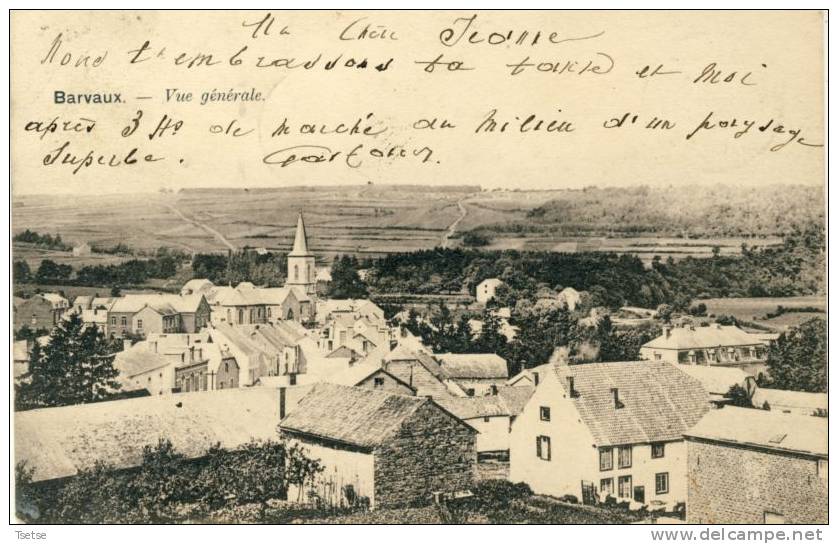 Ma Chère Jeanne
Nous t'embrassons ta tante et moi
Barvaux. — Vue générale.
après 3 Hs de marche au milieu d'un paysage
superbe.
Tsetse
www.delcampe.net